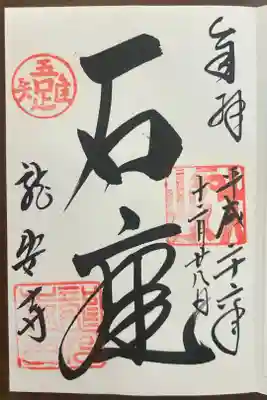 奉拝
平成二十六年
十二月廿八日
石庭
吾唯足知
龍安寺